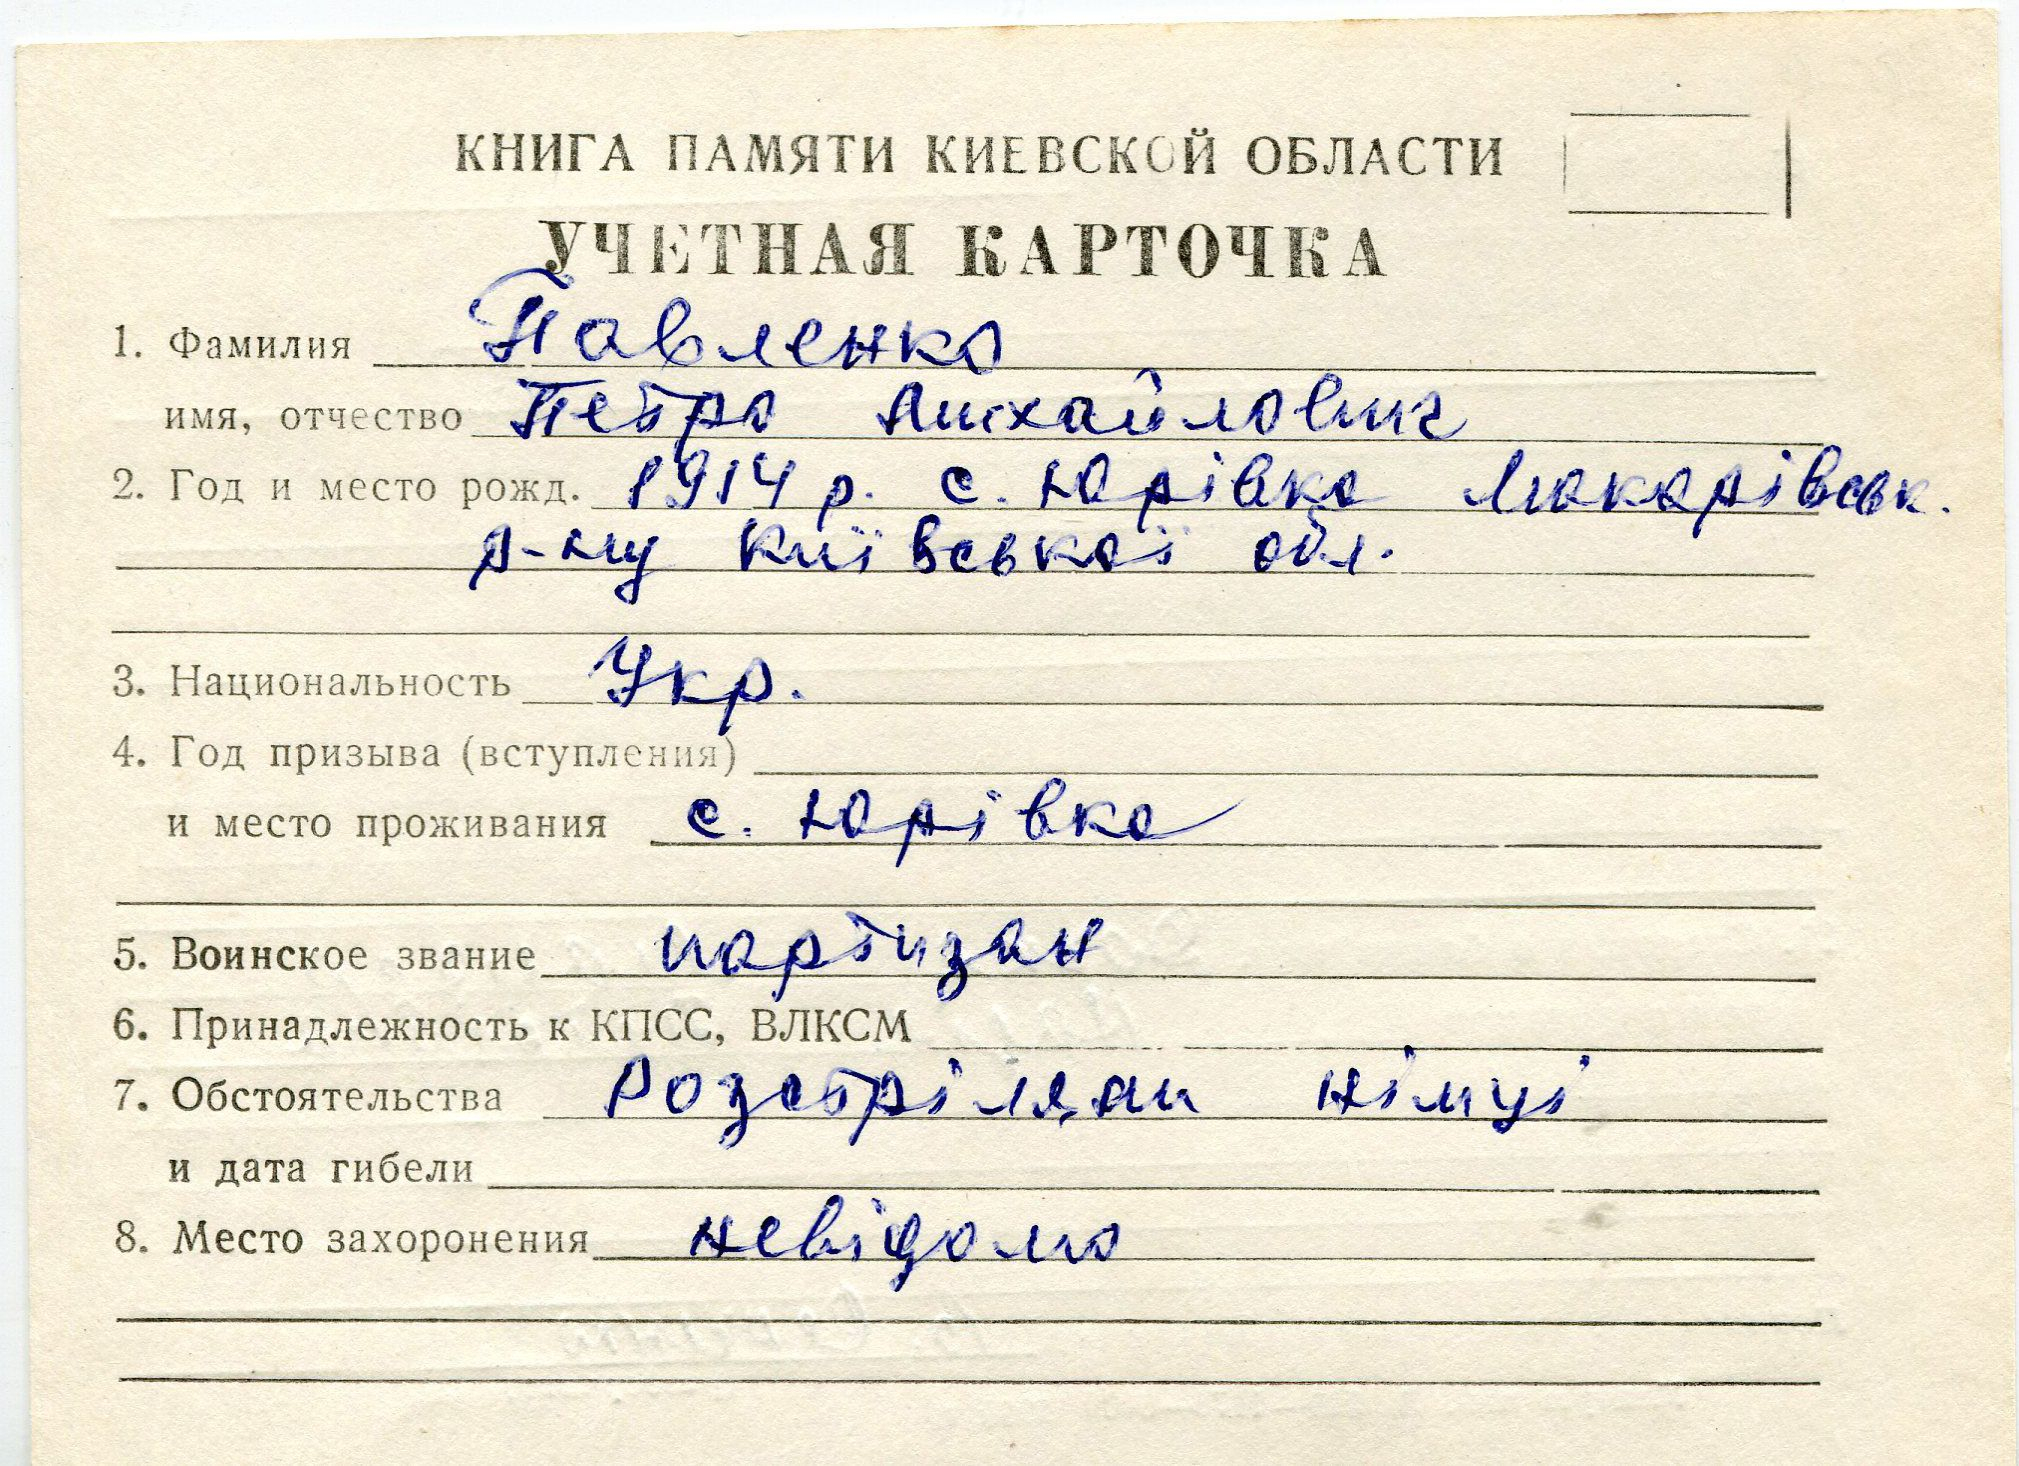 КНИГА ПАМЯТИ КИЕВСКОЙ ОБЛАСТИ
УЧЕТНАЯ КАРТОЧКА
1. Фамилия Павленко
имя, отчество Петро Михайлович
2. Год и место рожд. 1914 р. с. Юрівка Макарівськ.
р-ну Київської обл.
3. Национальность Укр.
4. Год призыва (вступления)
и место проживания с. Юрівка
5. Воинское звание партизан
6. Принадлежность к КПСС, ВЛКСМ
7. Обстоятельства Розстріляли німці
и дата гибели
8. Место захоронения невідомо